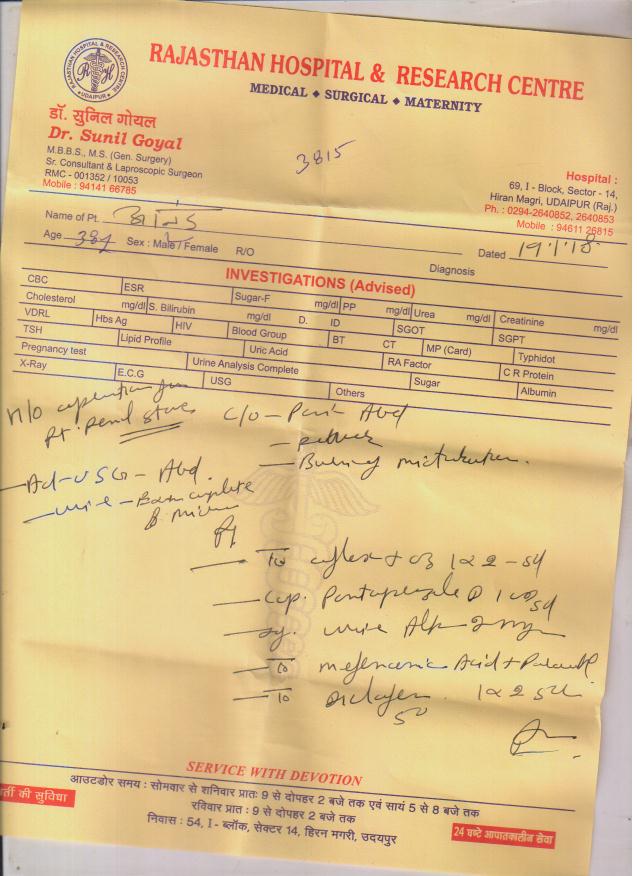 RAJASTHAN HOSPITAL & RESEARCH CENTRE
RAJASTHAN HOSPITAL & RESEARCH CENTRE
UDAIPUR
MEDICAL ◆ SURGICAL ◆ MATERNITY
डॉ. सुनिल गोयल
Dr. Sunil Goyal
M.B.B.S., M.S. (Gen. Surgery)
Sr. Consultant & Laproscopic Surgeon
RMC - 001352 / 10053
Mobile : 94141 66785
3815
Hospital :
69, I - Block, Sector - 14,
Hiran Magri, UDAIPUR (Raj.)
Ph. : 0294-2640852, 2640853
Mobile : 94611 26815
Name of Pt.
Age 38y Sex : Male / Female R/O Dated 19/1/18
Diagnosis
INVESTIGATIONS (Advised)
CBC ESR Sugar-F mg/dl PP mg/dl Urea mg/dl Creatinine mg/dl
Cholesterol mg/dl S. Bilirubin mg/dl D. ID SGOT SGPT
VDRL Hbs Ag HIV Blood Group BT CT MP (Card) Typhidot
TSH Lipid Profile Uric Acid RA Factor C R Protein
Pregnancy test Urine Analysis Complete Sugar Albumin
X-Ray E.C.G USG Others
H/O
Pt. renal stone
C/O - Pain Abd
- Burning micturition.
- Ad - USG - Abd.
- urine -
& micro
- Cap. Pantoprazole D 1 OD 5d
- Sy.
- Mefenamic Acid +
1 x 2 5d
50
SERVICE WITH DEVOTION
आउटडोर समय : सोमवार से शनिवार प्रातः 9 से दोपहर 2 बजे तक एवं सायं 5 से 8 बजे तक
रविवार प्रात : 9 से दोपहर 2 बजे तक
निवास : 54, I - ब्लॉक, सेक्टर 14, हिरन मगरी, उदयपुर
र्ती की सुविधा
24 घण्टे आपातकालीन सेवा